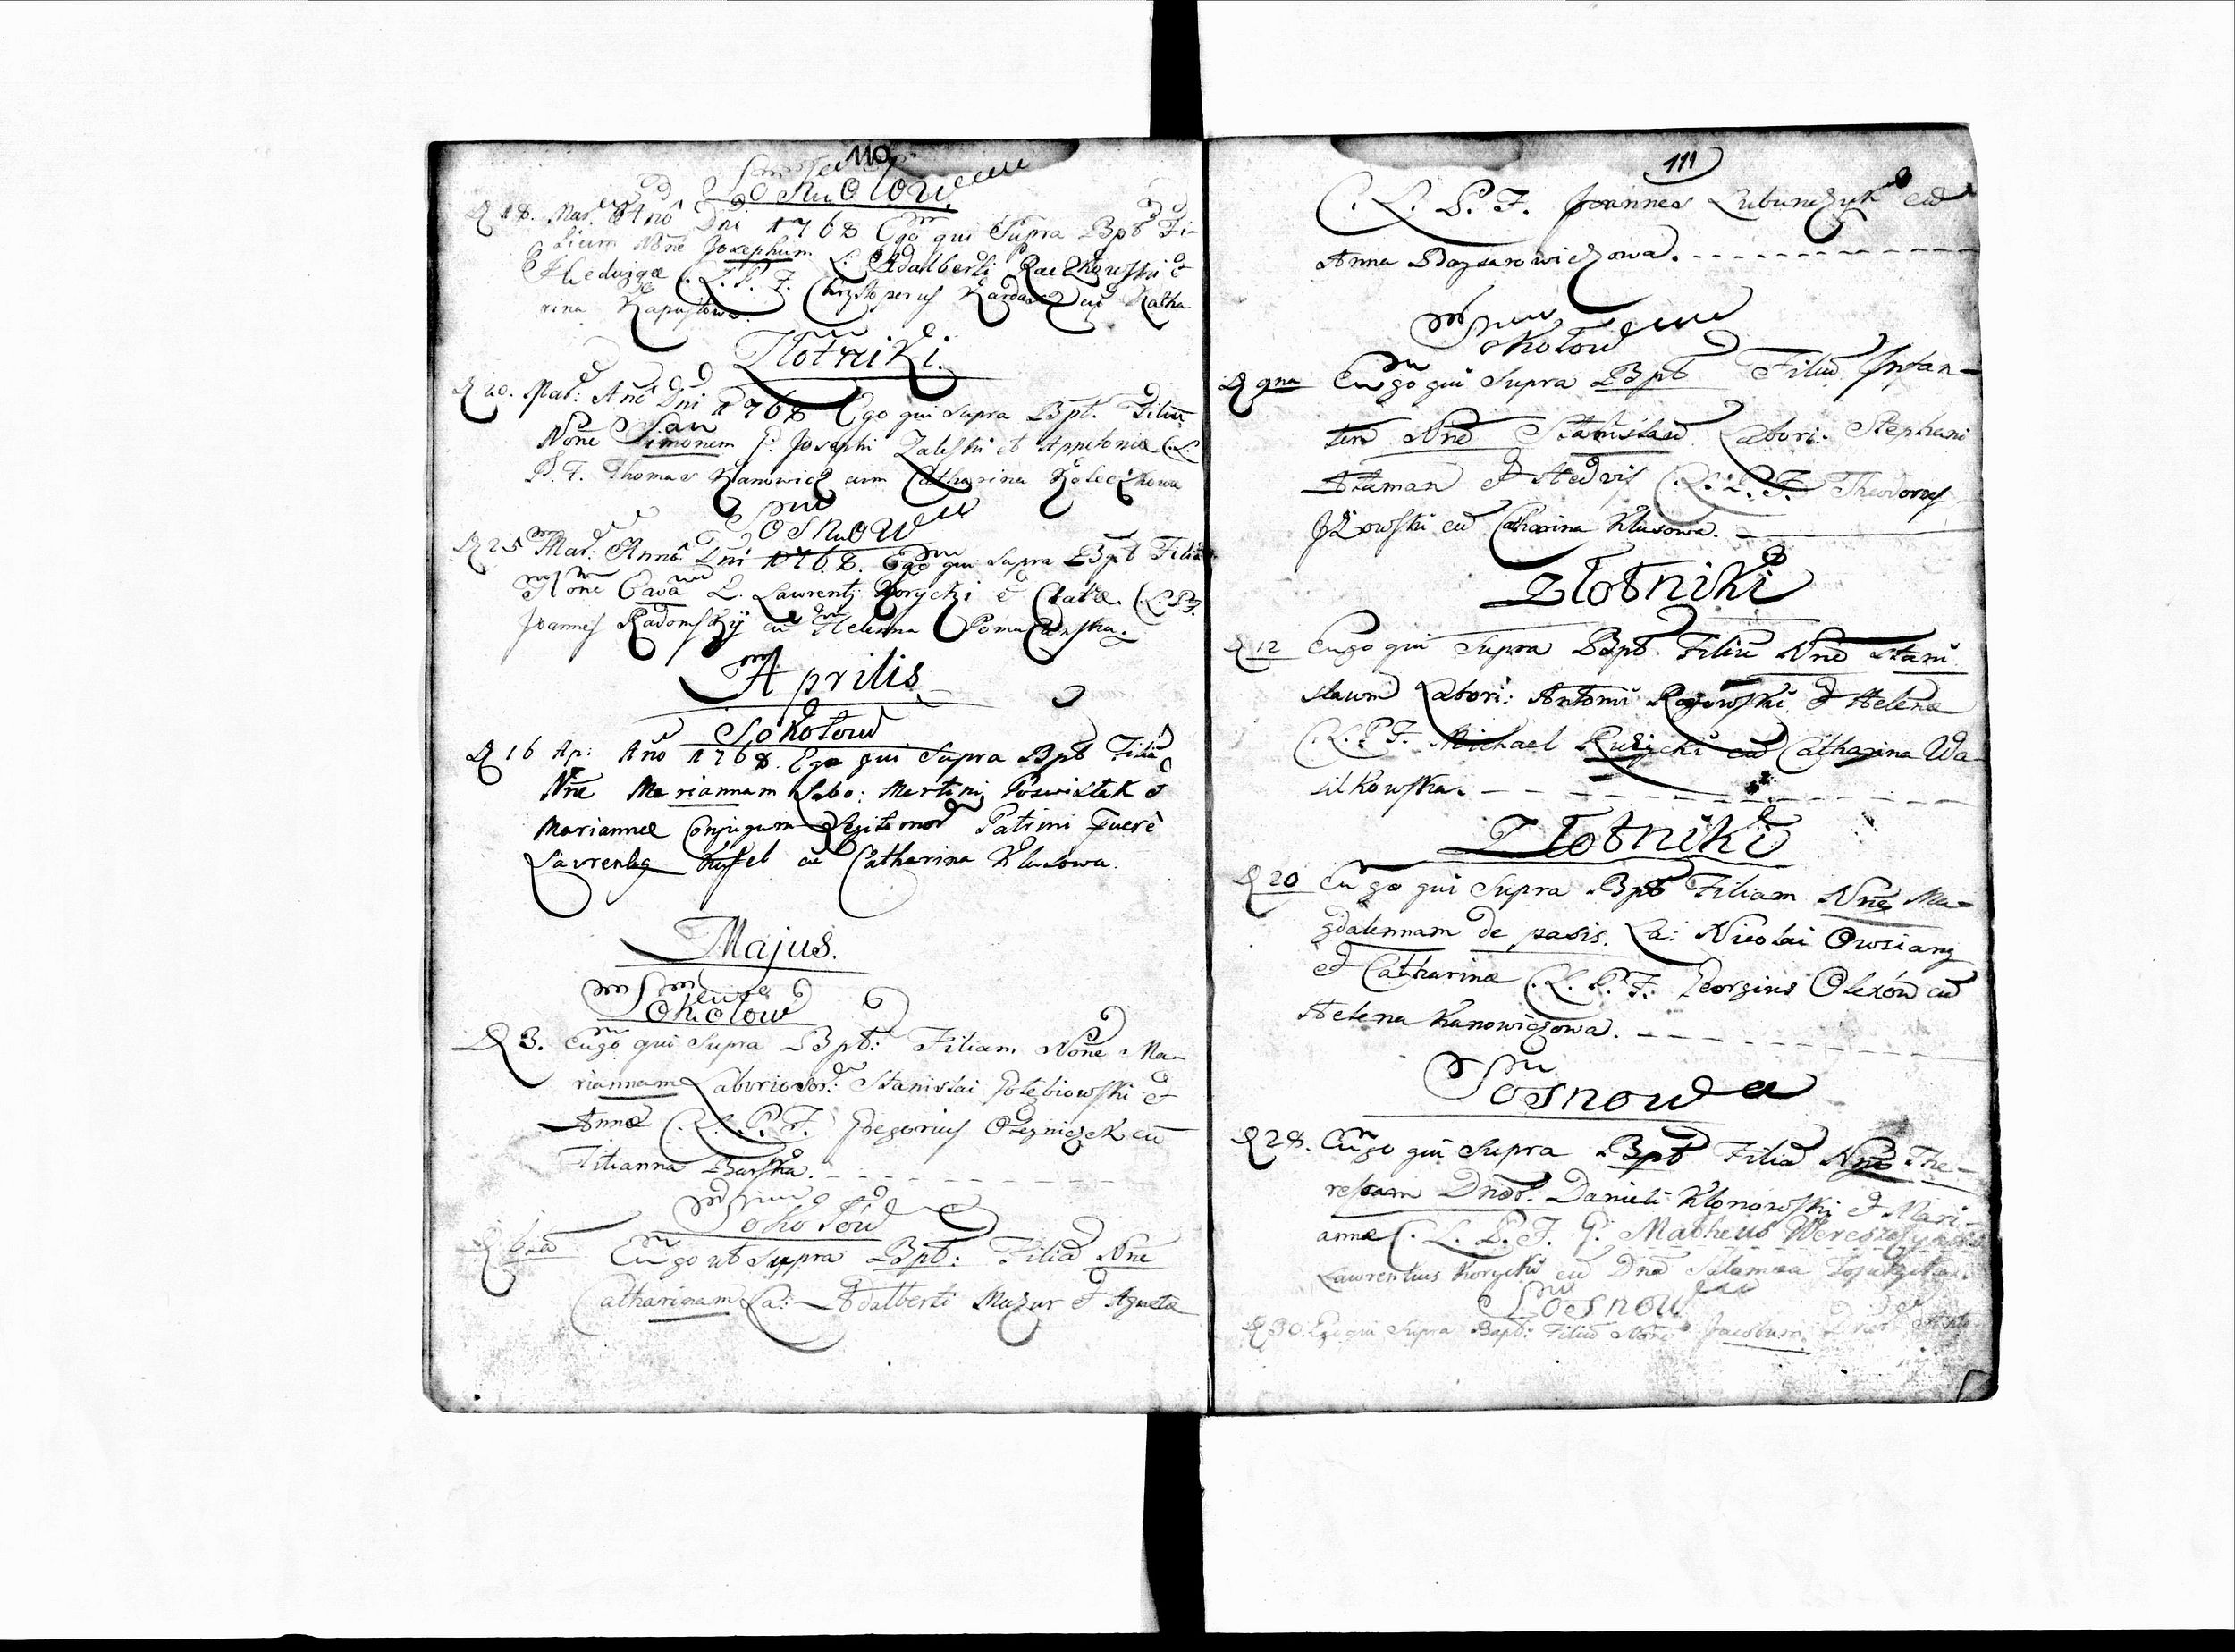 110
Sosnow
D 18. Mar. Ano Dni 1768 Ego qui Supra Bpt Fi-
lium None Josephum L: Adalberti Raczkowski et
Hedvigæ C. L. P. F. Chrystoperus cu Catha
rina Kapustowa.
Złotniki.
D 20. Mar: Ano Dni 1768 Ego qui Supra Bpt. Filiu
None Simonem G: Josephi Zaleski et Appolonia C. L.
P. F. Thomas Kanowicz cum Catharina Koleczkowa
Sosnow
D 25 Mar: Anno Dni 1768. Ego qui Supra Bpt Filia
None Evã L. Laurentij Korycki et Claræ C. L. P. F.
Joannes Radomskij cu Helenna
Aprilis
Sokołow
D 16 Ap: Ano 1768. Ego qui Supra Bpt Filiã
Nne Mariannam Labo: Martini Poswistek et
Mariannæ Conjugum Legitimor Patrini Fuere
Laurentius Kusel cu Catharina Klusowa.
Majus.
Sokołow
D 3. Eugo qui Supra Bpt: Filiam None Ma-
riannam Laboriosor: Stanislai Gołębiowski et
Annæ C. L. P. F. Gregorius Olezniczek cu
Titianna Barska.
Sokołow
D 6ta Eugo ut Suppra Bpt: Filiã Nne
Catharinam La: Adalberti Mazur et Agnetæ
111
C. L. P. F. Joannes Lubunczyk cu
Anna
Sokołow
D 9na Eugo qui Supra Bpt Filiu Infan-
tem Nne Stanislau Labori: Stephani
Ataman et Hedvis C. L. P. F. Theodorus
cu Catharina Klusowa.
Złotniki
D 12 Eugo qui Supra Bpt Filiu Nne Stani
slaum Labori: Antoni Rogowski et Helenæ
C. L. P. F. Michael Rużycki cu Catharina Wa-
silkowska.
Złotniki
D 20 Eugo qui Supra Bpt Filiam Nne Ma-
gdalennam de pasis. La: Nicolai Owsiany
et Catharinæ C. L. P. F. Georgius Olexów cu
Helena Kanowiczowa.
Sosnow
D 28. Eugo qui Supra Bpt Filiã Nne The-
resam Dnor. Danieli Klonowski et Mari-
annæ C. L. P. F. G: Matheus
Laurentius Korycki cu Dna Salomea
Sosnow
D 30. Ego qui Supra Bapt: Filiu None Jacobum. Dnor Anto-
nij